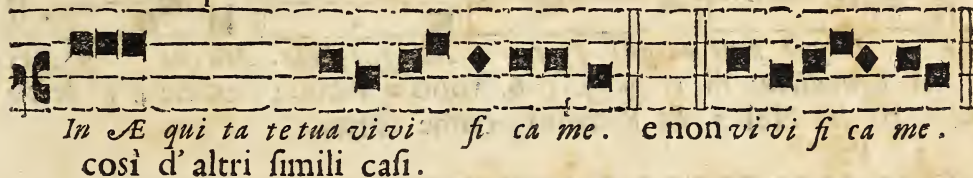 In Æ qui ta te tua vi vi fi ca me. e non vi vi fi ca me.
così d'altri ſimili caſi.